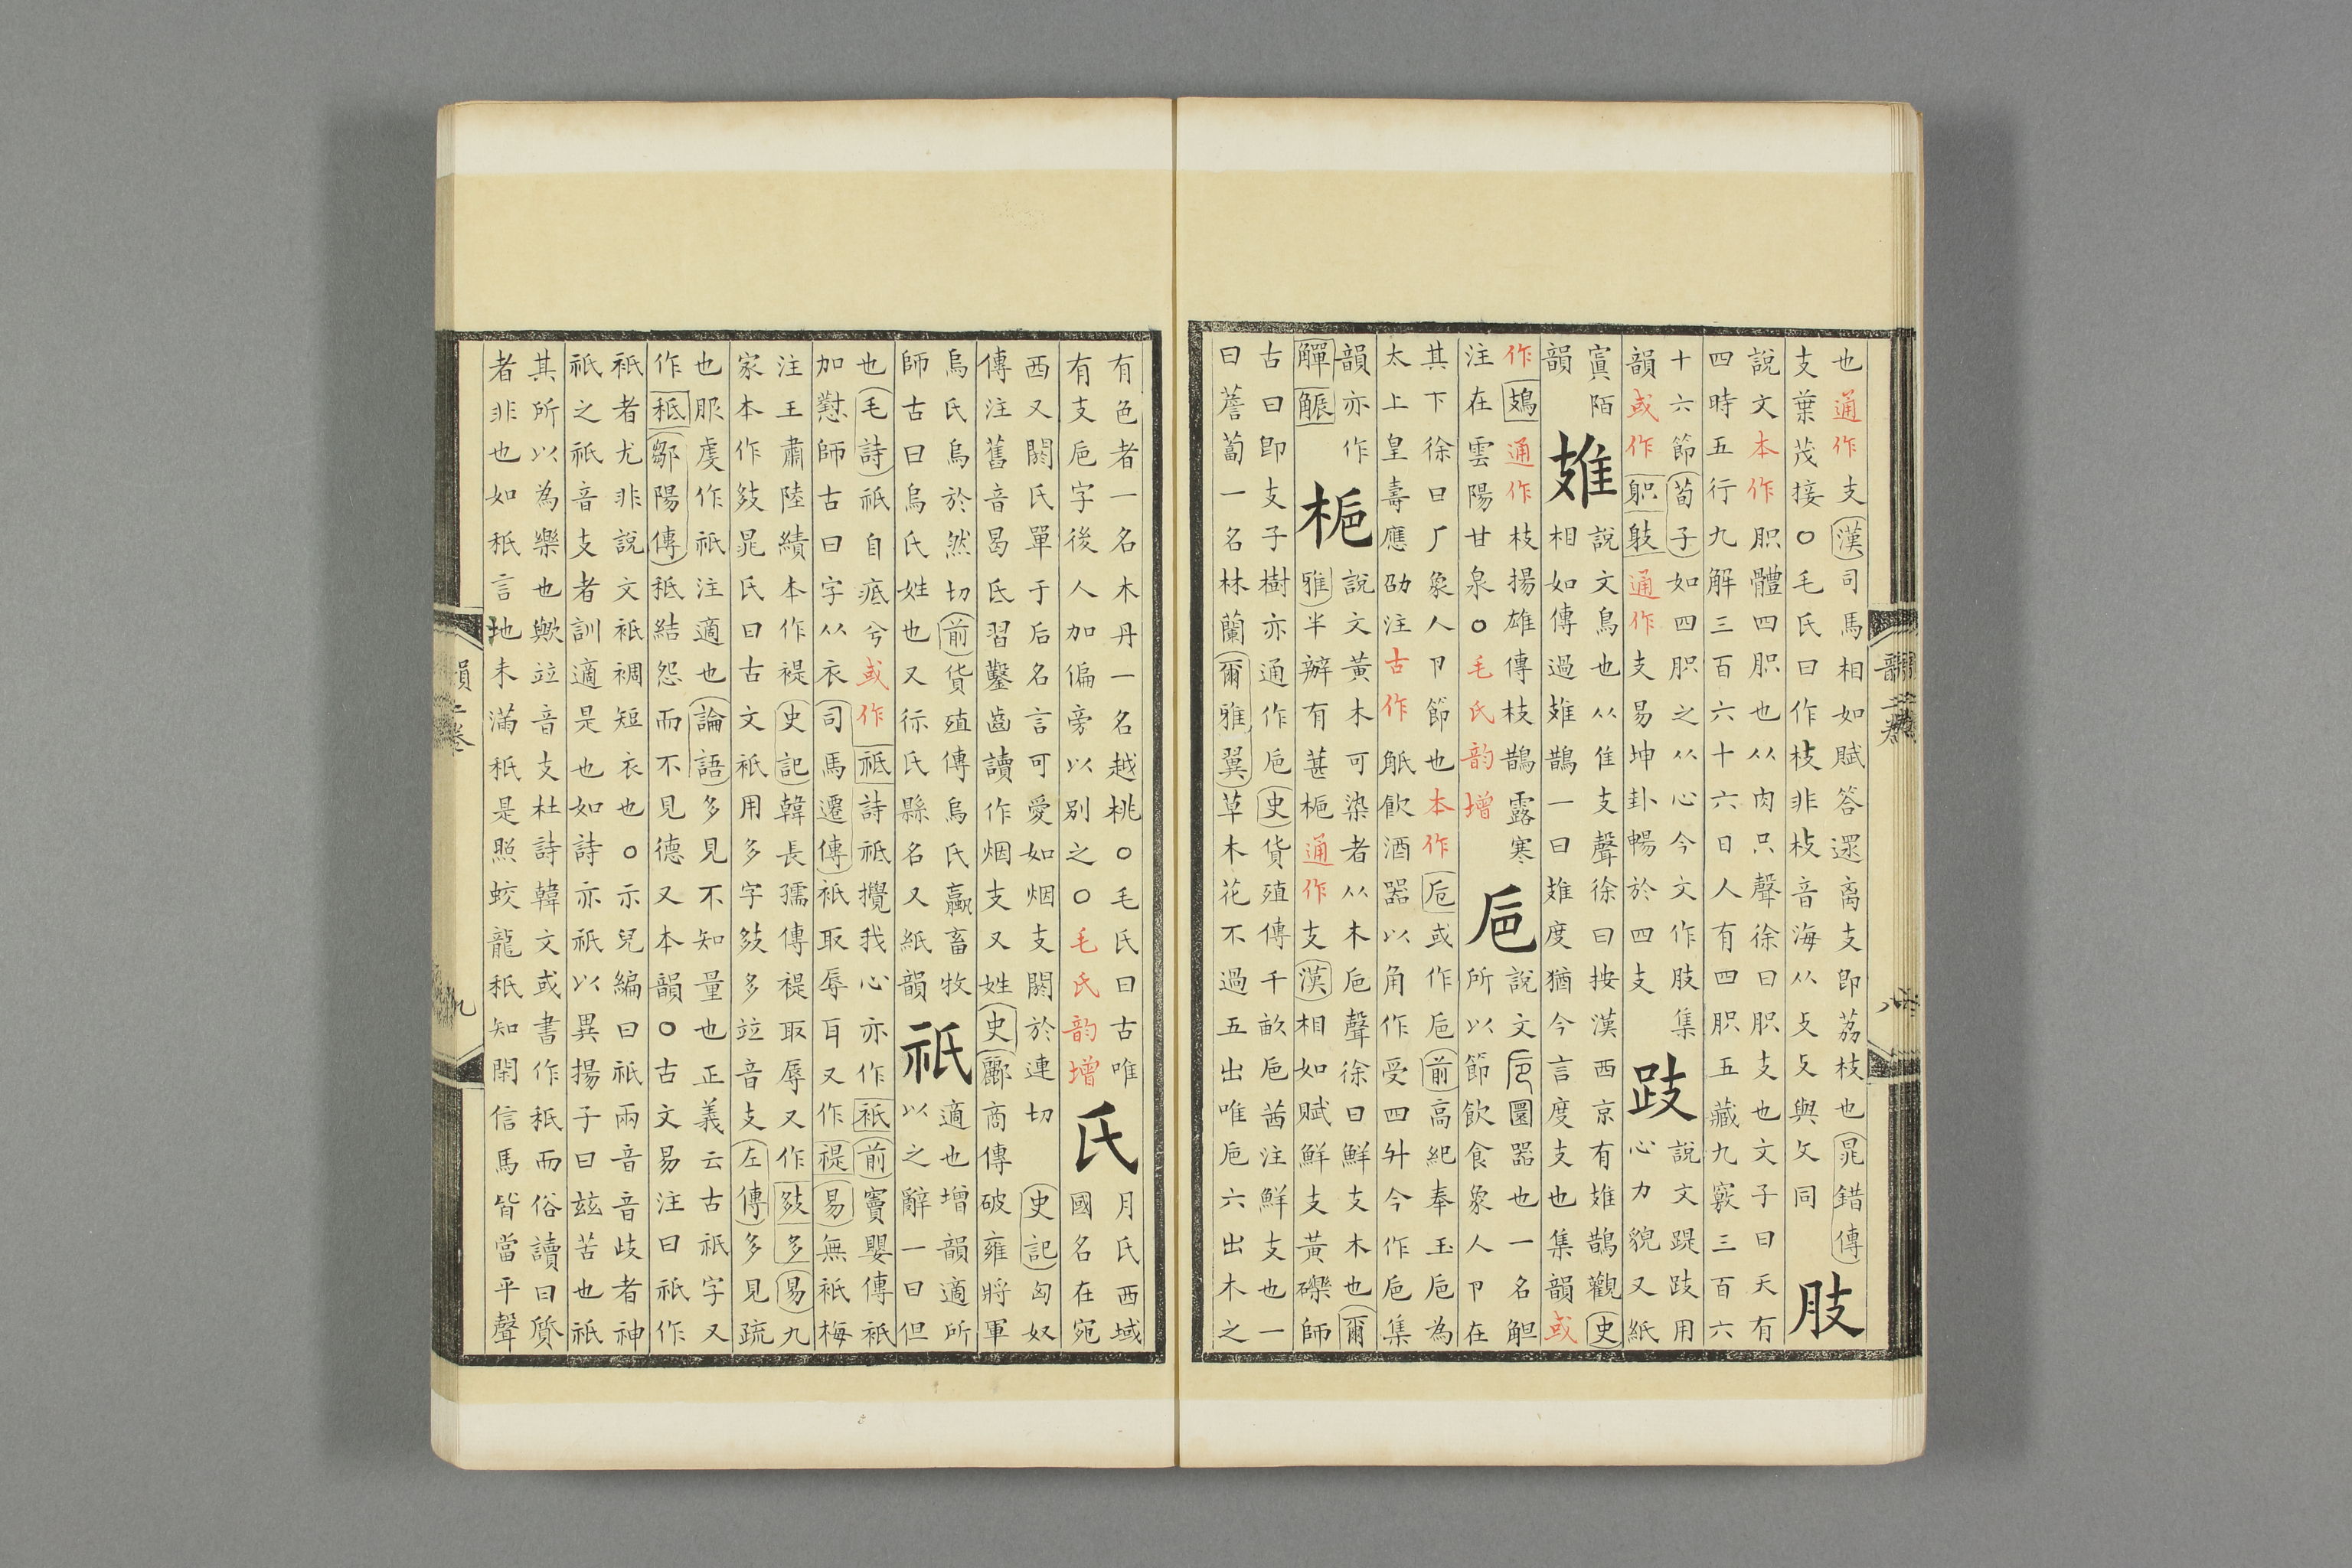 也通作支漢司馬相如賦答遝离支即荔枝也晁錯傳
支葉茂接○毛氏曰作枝非枝音海从攴攴與攵同
肢
說文本作胑體四胑也从肉只聲徐曰胑支也文子曰天有
四時五行九解三百六十六日人有四胑五藏九竅三百六
十六節荀子如四胑之从心今文作肢集
韻或作躬䠋通作支易坤卦暢於四支
跂
說文踶跂用
心力貌又紙
寘陌
韻
雉
說文鳥也从隹支聲徐曰按漢西京有雉鵲觀史
相如傳過雉鵲一曰雉度猶今言度支也集韻或
作鳷通作枝揚雄傳枝鵲露寒
注在雲陽甘泉○毛氏韵增
巵
說文巵圜器也一名觛
所以節飲食象人卪在
其下徐曰厂象人卪節也本作巵或作卮前高紀奉玉卮為
太上皇壽應劭注古作觗飲酒器以角作受四升今作卮集
韻亦作
觶䏾
梔
說文黃木可染者从木卮聲徐曰鮮支木也爾
雅半辦有葚梔通作支漢相如賦鮮支黃礫師
古曰即支子樹亦通作卮史貨殖傳千畝卮茜注鮮支也一
曰薝蔔一名林蘭爾雅翼草木花不過五出唯卮六出木之
韻二卷 八
有色者一名木丹一名越桃○毛氏曰古唯
有支卮字後人加偏旁以別之○毛氏韵增
氏
月氏西域
國名在宛
西又閼氏單于后名言可愛如烟支閼於連切史記匈奴
傳注舊音曷氏習鑿齒讀作烟支又姓史酈商傳破雍將軍
烏氏烏於然切前貨殖傳烏氏蠃畜牧
師古曰烏氏姓也又𤜶氏縣名又紙韻
祇
適也增韻適所
以之辭一曰但
也毛詩祇自疧兮或作祗詩祗攪我心亦作衹前竇嬰傳衹
加懟師古曰字从衣司馬遷傳衹取辱耳又作禔易無衹梅
注王肅陸績本作禔史記韓長孺傳禔取辱又作䟎多易九
家本作䟎晁氏曰古文衹用多字䟎多竝音支左傳多見疏
也服虔作祇注適也論語多見不知量也正義云古祇字又
作秖鄒陽傳秖結怨而不見德又本韻○古文易注曰祇作
衹者尤非說文衹裯短衣也○示兒編曰祇兩音音歧者神
祇之祇音支者訓適是也如詩亦祇以異揚子曰玆苦也祇
其所以為樂也歟竝音支杜詩韓文或書作秖而俗讀曰質
者非也如秖言地未滿秖是照蛟龍秖知閑信馬皆當平聲
韻二卷 九